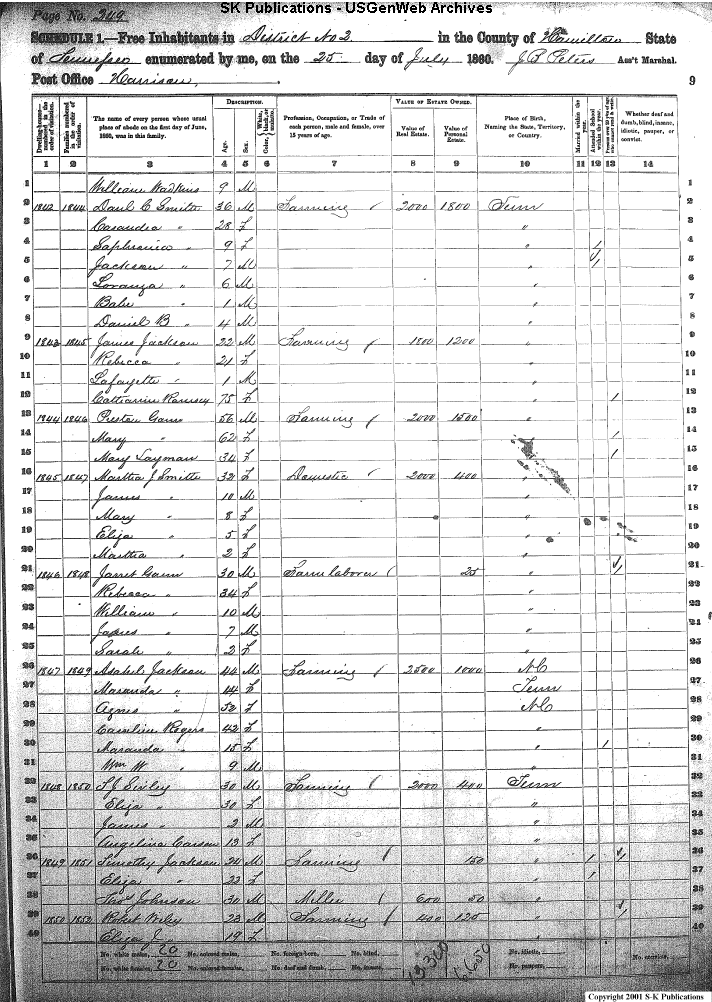 SK Publications - USGenWeb Archives
Page No. 349
SCHEDULE 1.—Free Inhabitants in District No 2 in the County of Hamilton State
of Tennessee enumerated by me, on the 25 day of July 1860. J B Peters Ass't Marshal.
Post Office Harrison,
9
Dwelling-houses—numbered in the order of visitation.
Families numbered in the order of visitation.
The name of every person whose usual place of abode on the first day of June, 1860, was in this family.
DESCRIPTION.
Age.
Sex.
Color, White, black, or mulatto.
Profession, Occupation, or Trade of each person, male and female, over 15 years of age.
VALUE OF ESTATE OWNED.
Value of Real Estate.
Value of Personal Estate.
Place of Birth, Naming the State, Territory, or Country.
Married within the year.
Attended School within the year.
Whether deaf and dumb, blind, insane, idiotic, pauper, or convict.
1 2 3 4 5 6 7 8 9 10 11 12 13 14
1 William Wadkins 9 M 1
2 1842 1844 Danl C Smith 36 M Farming 2000 1800 Tenn 2
3 Casandra " 28 F " 3
4 Saphronia " 9 F " 1 4
5 Jackson " 7 M " 1 5
6 Loranza " 6 M " 6
7 Babe " 1 M " 7
8 Daniel B " 4 M " 8
9 1843 1845 James Jackson 22 M Farming 1800 1200 " 9
10 Rebecca " 21 F " 10
11 Lafayette " 1 M " 11
12 Catharine Ramsey 75 F " 1 12
13 1844 1846 Preston Gann 56 M Farming 2000 1500 " 13
14 Mary " 62 F 1 14
15 Mary Layman 34 F 1 15
16 1845 1847 Martha J Smith 32 F Domestic 2000 400 16
17 James " 10 M " 17
18 Mary " 8 F " 18
19 Eliza " 5 F " 19
20 Martha " 2 F " 20
21 1846 1848 Jarret Gann 30 M Farm laborer 25 " 1 21
22 Rebecca " 34 F " 22
23 William " 10 M " 23
24 James " 7 M " 24
25 Sarah " 2 F " 25
26 1847 1849 Asahel Jackson 44 M Farming 2500 1000 NC 26
27 Maranda " 14 F Tenn 27
28 Agnes " 52 F NC 28
29 Caroline Rogers 42 F " 29
30 Maranda " 15 F " 1 30
31 Wm W " 9 M " 31
32 1848 1850 30 M Farming 2000 400 Tenn 32
33 Eliza " 30 F " 33
34 James " 2 M " 34
35 Angelina Carson 13 F " 35
36 1849 1851 Timothy Jackson 24 M Farming 150 " 1 1 36
37 Eliza " 23 F " 1 37
38 Thos Johnson 30 M Miller 600 50 " 38
39 1850 1852 Robert 23 M Farming 400 125 " 1 39
40 Eliza J " 19 F " 40
No. white males, 20 No. colored males, No. foreign born, No. blind, 13300 6650 No. idiotic, No. convicts,
No. white females, 20 No. colored females, No. deaf and dumb, No. insane, No. paupers,
Copyright 2001 S-K Publications